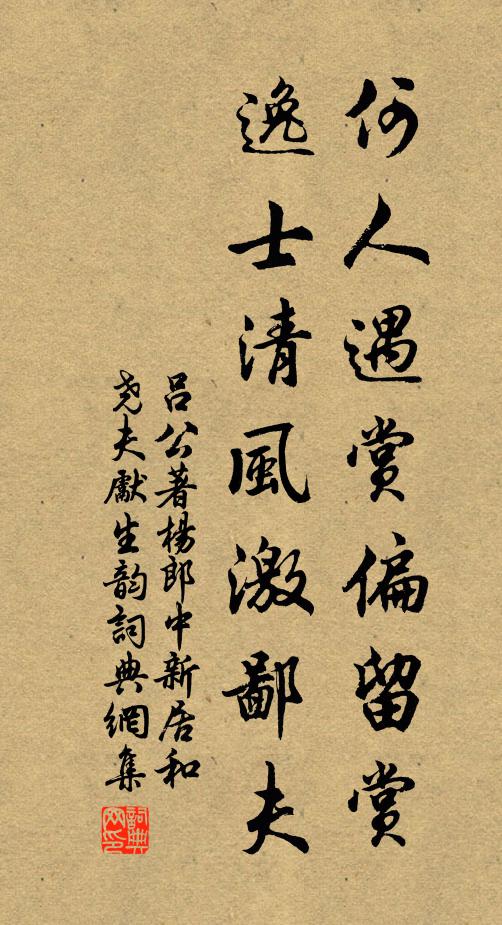 何人遇賞偏留賞
逸士清風激鄙夫
呂公著楊郎中新居和
堯夫獻生韵詞典網集
詞典网印